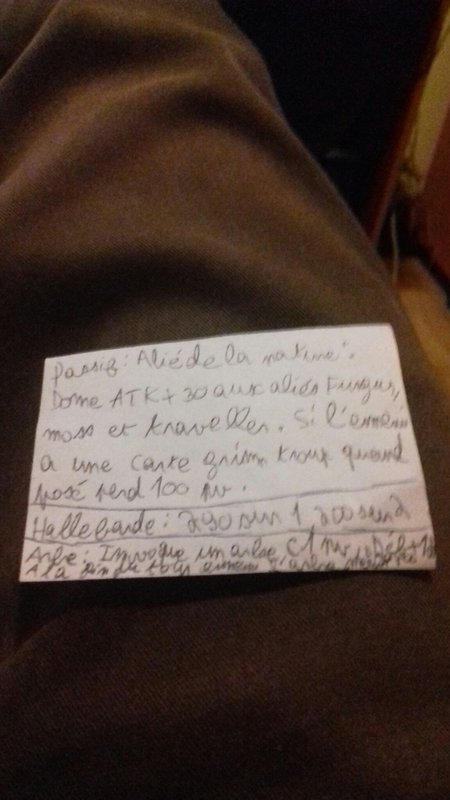 Passif: Alié de la nature:
Donne ATK + 30 aux aliés Fungus,
moss et traveller. Si l'ennemi
a une carte grimm troup quand
posé perd 100 pv.
Hallebarde: 290 sur 1, 200 sur 2
Arbre: Invoque un arbre C1 PV,
A la fin du tour ennemi l'arbre